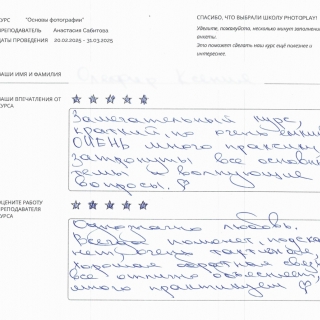 КУРС "Основы фотографии"
ПРЕПОДАВАТЕЛЬ Анастасия Сабитова
ДАТЫ ПРОВЕДЕНИЯ 20.02.2025 - 31.03.2025
СПАСИБО, ЧТО ВЫБРАЛИ ШКОЛУ PHOTOPLAY!
Уделите, пожалуйста, несколько минут заполнени
анкеты.
Это поможет сделать наш курс ещё полезнее и
интереснее.
ВАШИ ИМЯ И ФАМИЛИЯ
ВАШИ ВПЕЧАТЛЕНИЯ ОТ
КУРСА
Замечательный курс,
краткий, но очень ёмкий
ОЧЕНЬ много практики
Затронуты все основн
темы и волнующие
вопросы.
ОЦЕНИТЕ РАБОТУ
ПРЕПОДАВАТЕЛЯ
КУРСА
Однозначно любовь.
Всегда поможет, подска
жет, очень тактичная,
хорошая обратная связь
все отлично объясняет,
много практикуем